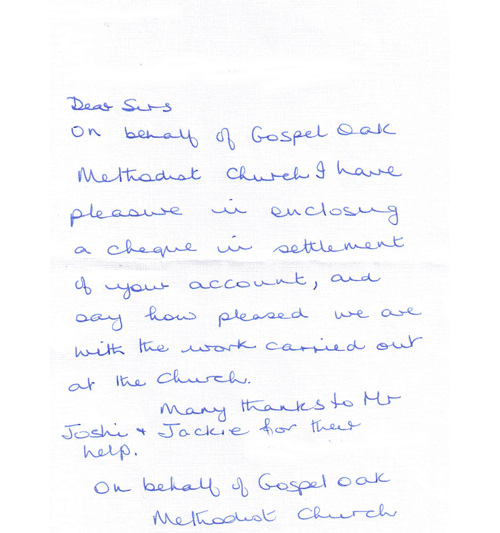 Dear Sirs
On behalf of Gospel Oak
Methodist Church I have
pleasure in enclosing
a cheque in settlement
of your account, and
say how pleased we are
with the work carried out
at the Church.
Many thanks to Mr
Joshi + Jackie for their
help.
On behalf of Gospel Oak
Methodist Church